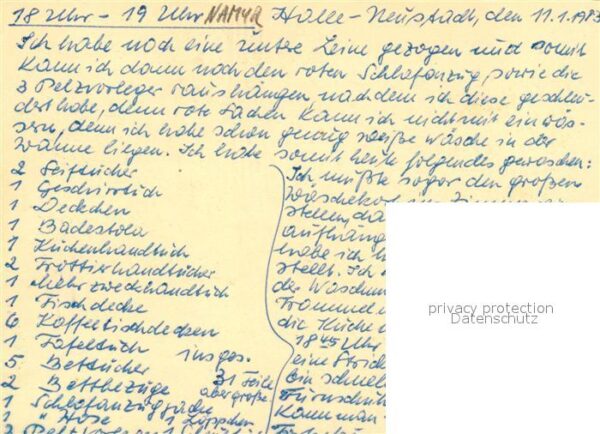 18 Uhr - 19 Uhr NAMYR Halle-Neustadt, den 11.1.1983
Ich habe noch eine untere Leine gezogen und somit
kann ich dann noch den roten Schlafanzug, sowie die
3 Pelzvorleger raushängen nachdem ich diese geschleu-
dert habe, denn rote Sachen kann ich nicht mit einwäs-
sern, denn ich habe schon genug weiße Wäsche in der
Wanne liegen. Ich habe somit heute folgendes gewaschen:
2 Seiftücher
1 Geschirrtuch
1 Deckchen
1 Badestola
1 Küchenhandtuch
2 Frottierhandtücher
1 Mehrzweckhandtuch
1 Tischdecke
6 Kaffeetischdecken
1 Tafeltuch insges.
5 Bettücher 31 Teile
2 Bettbezüge aber große
1 Schlafanzugjacke
1 " Hose 1 Läppchen
Ich müßte sogar den großen
Wäschekorb
stellen, da
aufhäng
habe ich
stellt. Ich
der Waschm
Trommel
die Küche
18 45 Uhr
eine Strick
ein schnell
Kann man
privacy protection
Datenschutz